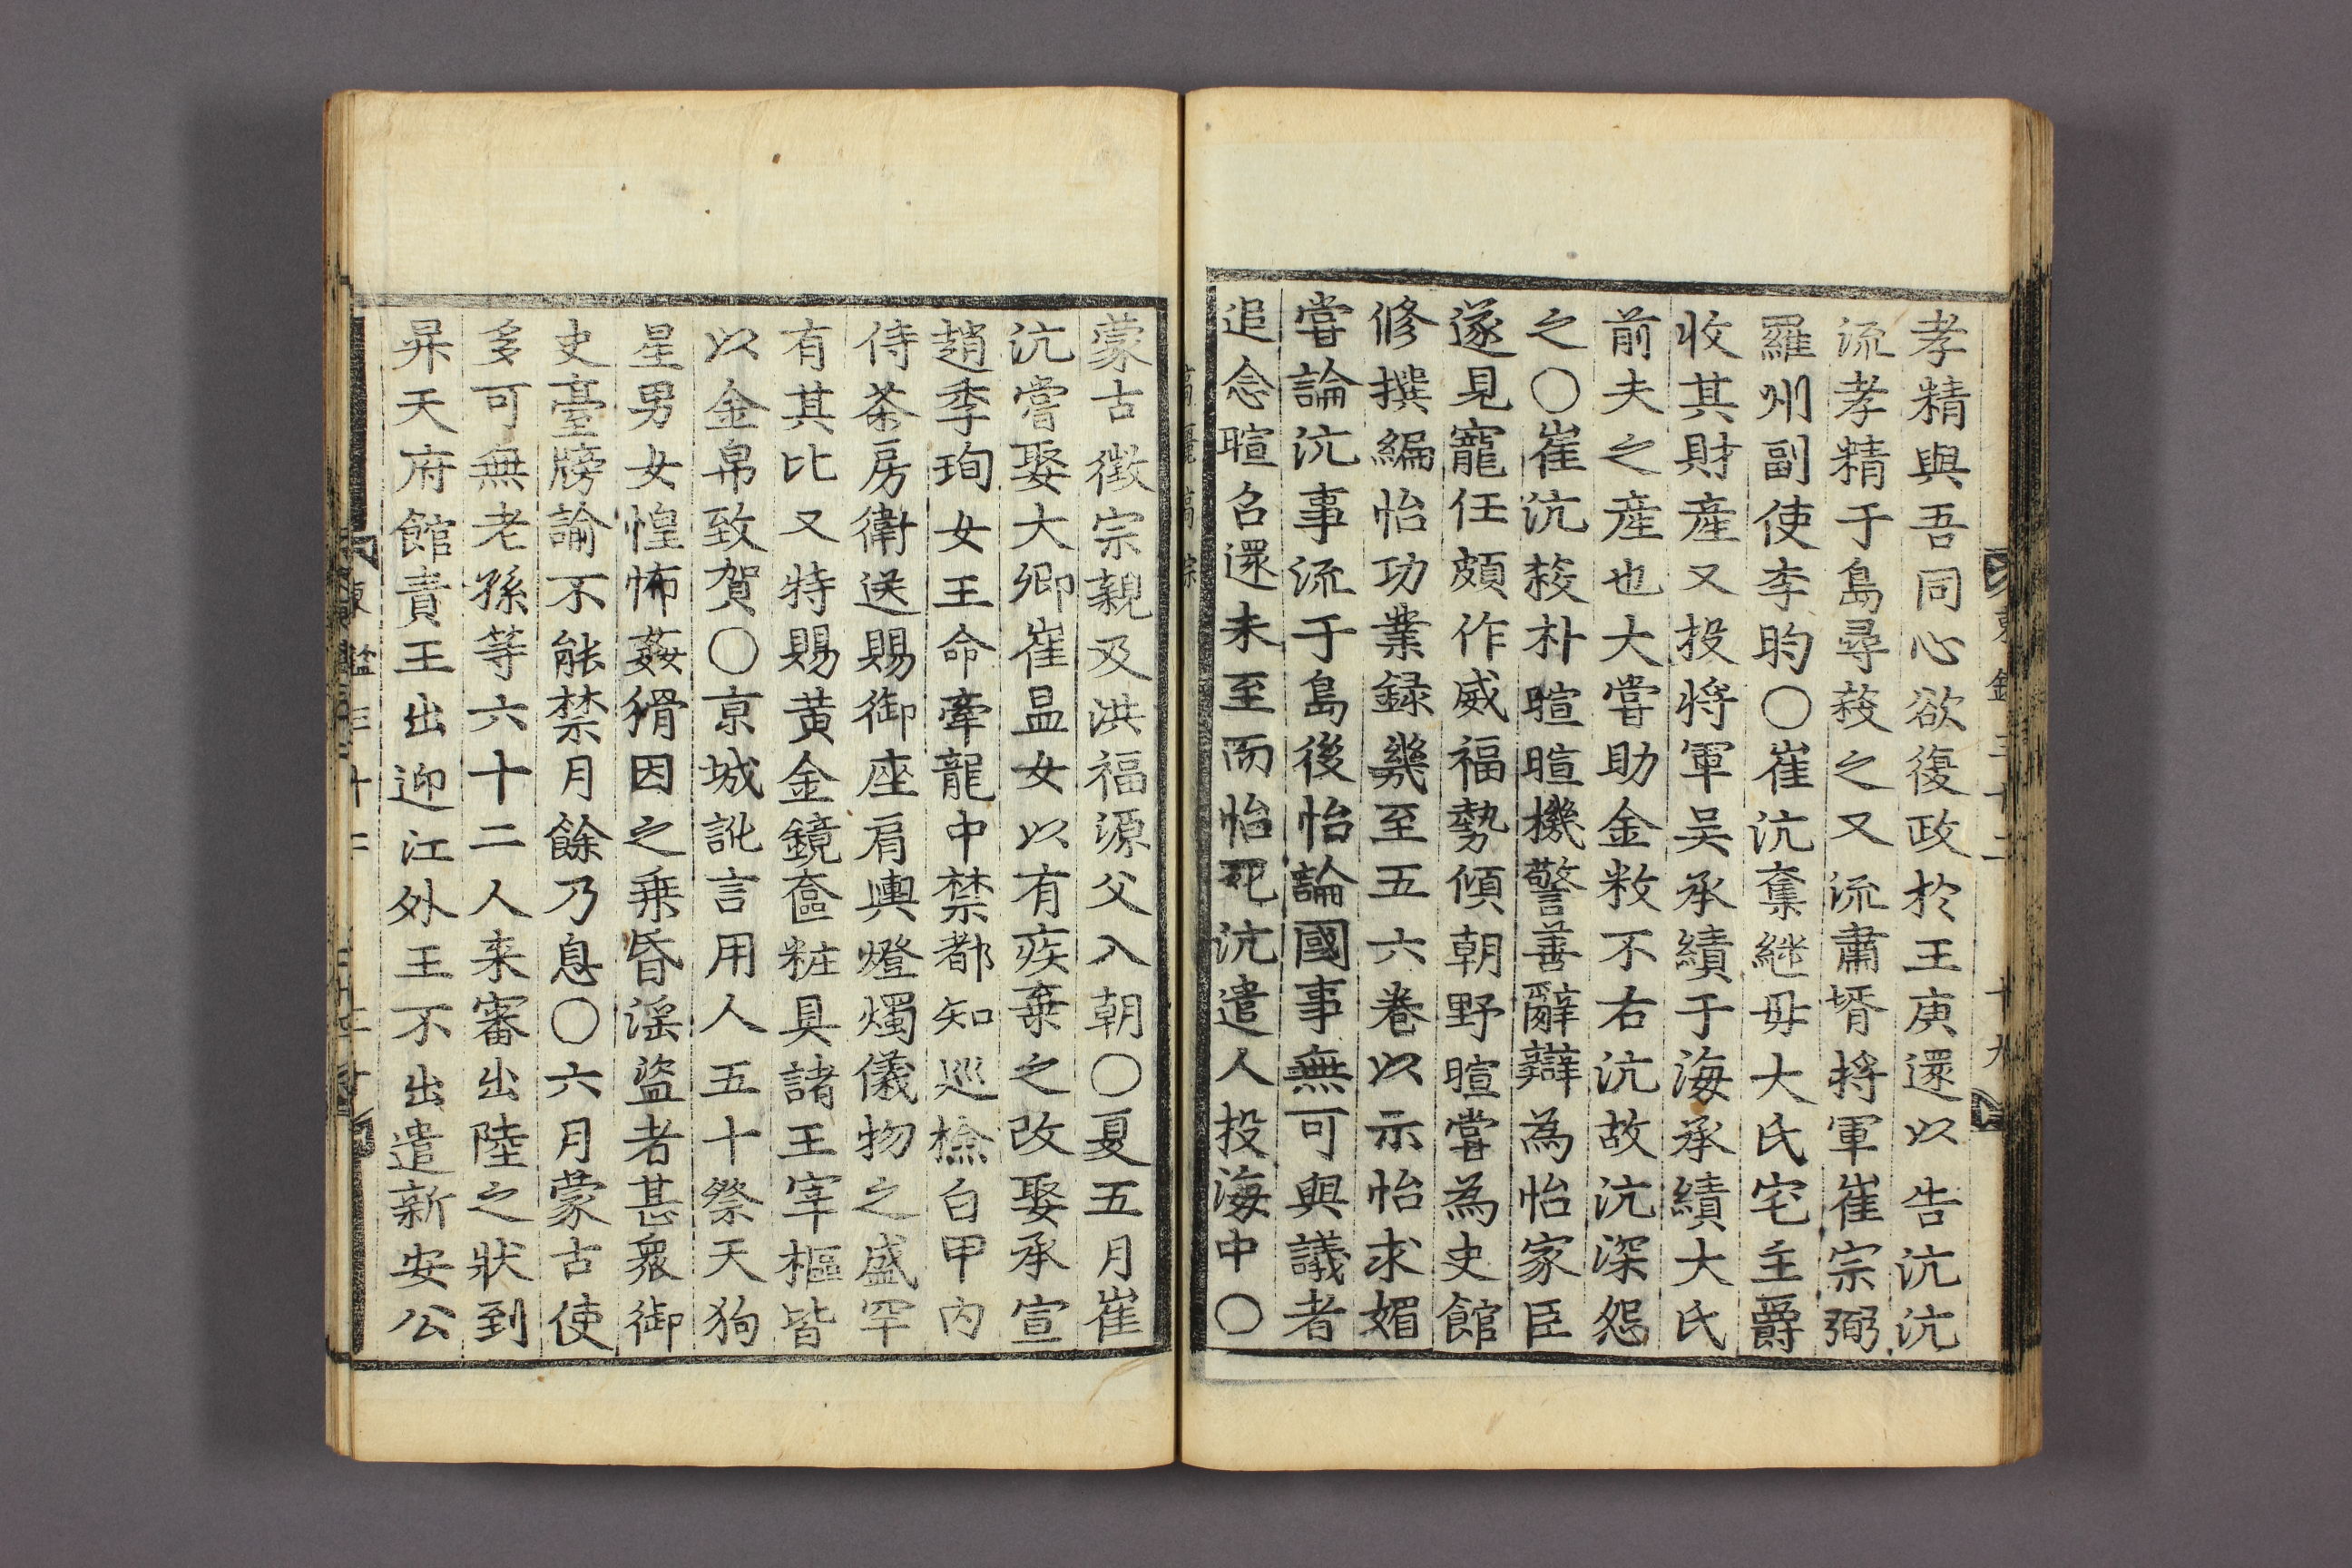 孝精與吾同心欲復政於王庾還以告沆沆
流孝精于島尋殺之又流肅壻將軍崔宗弼
羅州副使李昀〇崔沆奪継母大氏宅主爵
收其財產又投將軍吴承績于海承績大氏
前夫之產也大嘗助金敉不右沆故沆深怨
之〇崔沆殺朴暄暄機警善辭辯為怡家臣
遂見寵任頗作威福勢傾朝野暄嘗為史館
修撰編怡功業録幾至五六卷以示怡求媚
嘗論沆事流于島後怡論國事無可與議者
追念暄召還未至而怡死沆遣人投海中〇
蒙古徵宗親及洪福源父入朝〇夏五月崔
沆嘗娶大卿崔昷女以有疾棄之改娶承宣
趙季珣女王命牽龍中禁都知巡檢白甲內
侍茶房衛送賜御座肩輿燈燭儀物之盛罕
有其比又特賜黃金鏡奩粧具諸王宰樞皆
以金帛致賀〇京城訛言用人五十祭天狗
星男女惶怖姦猾因之乗昏滛盜者甚衆御
史臺牓諭不能禁月餘乃息〇六月蒙古使
多可無老孫等六十二人来審出陸之狀到
昇天府館責王出迎江外王不出遣新安公